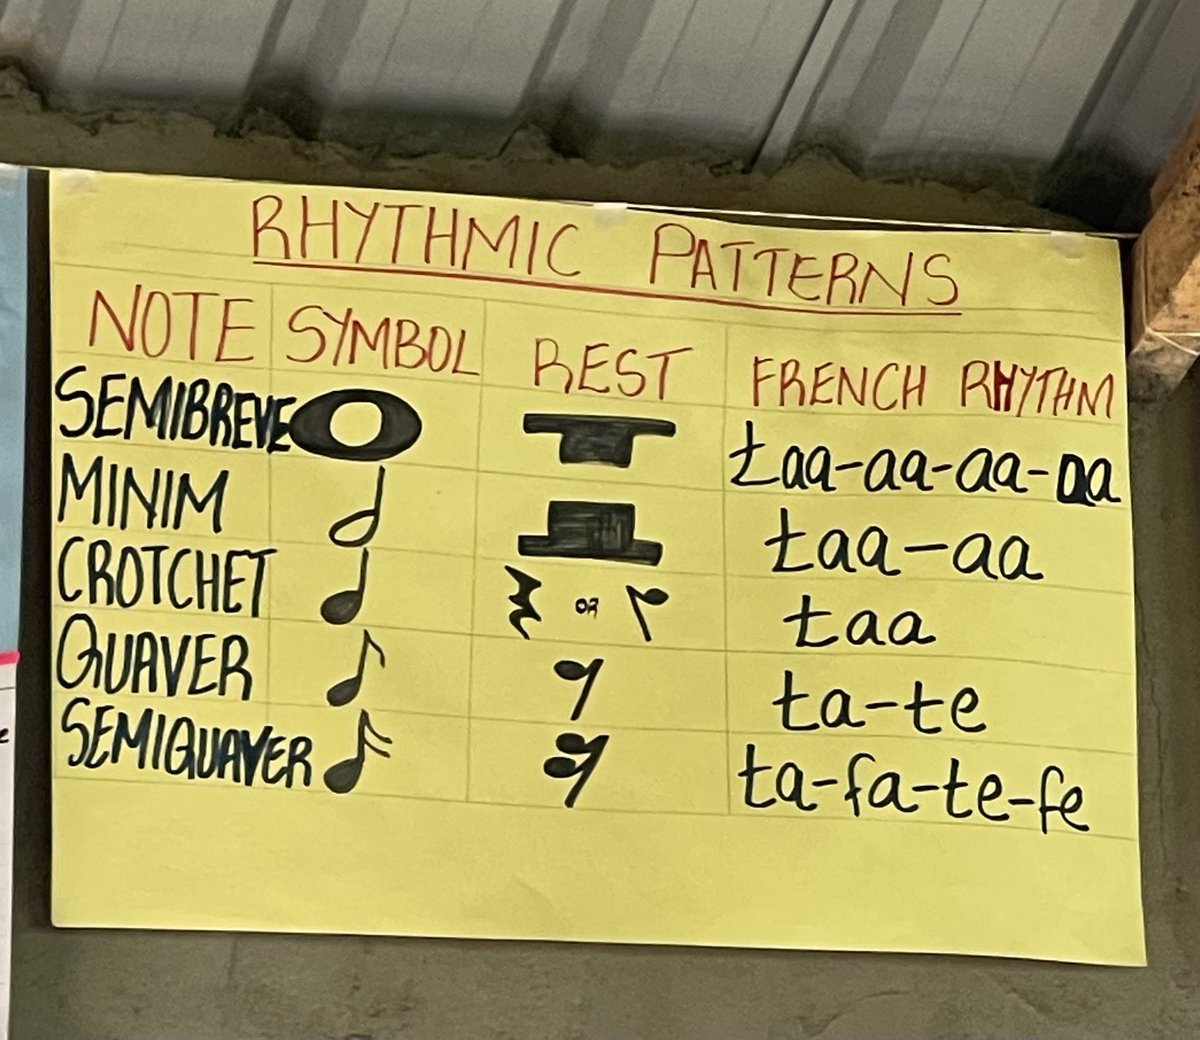 RHYTHMIC PATTERNS
NOTE SYMBOL REST FRENCH RHYTHM
SEMIBREVE taa-aa-aa-aa
MINIM taa-aa
CROTCHET OR taa
QUAVER ta-te
SEMIQUAVER ta-fa-te-fe